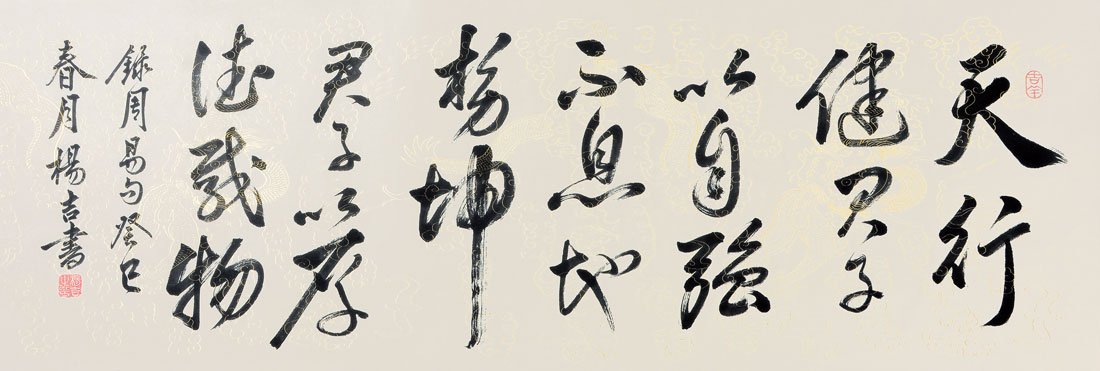 天行
健君子
以自强
不息地
势坤
君子以厚
德载物
録周易句癸巳
春月楊吉書